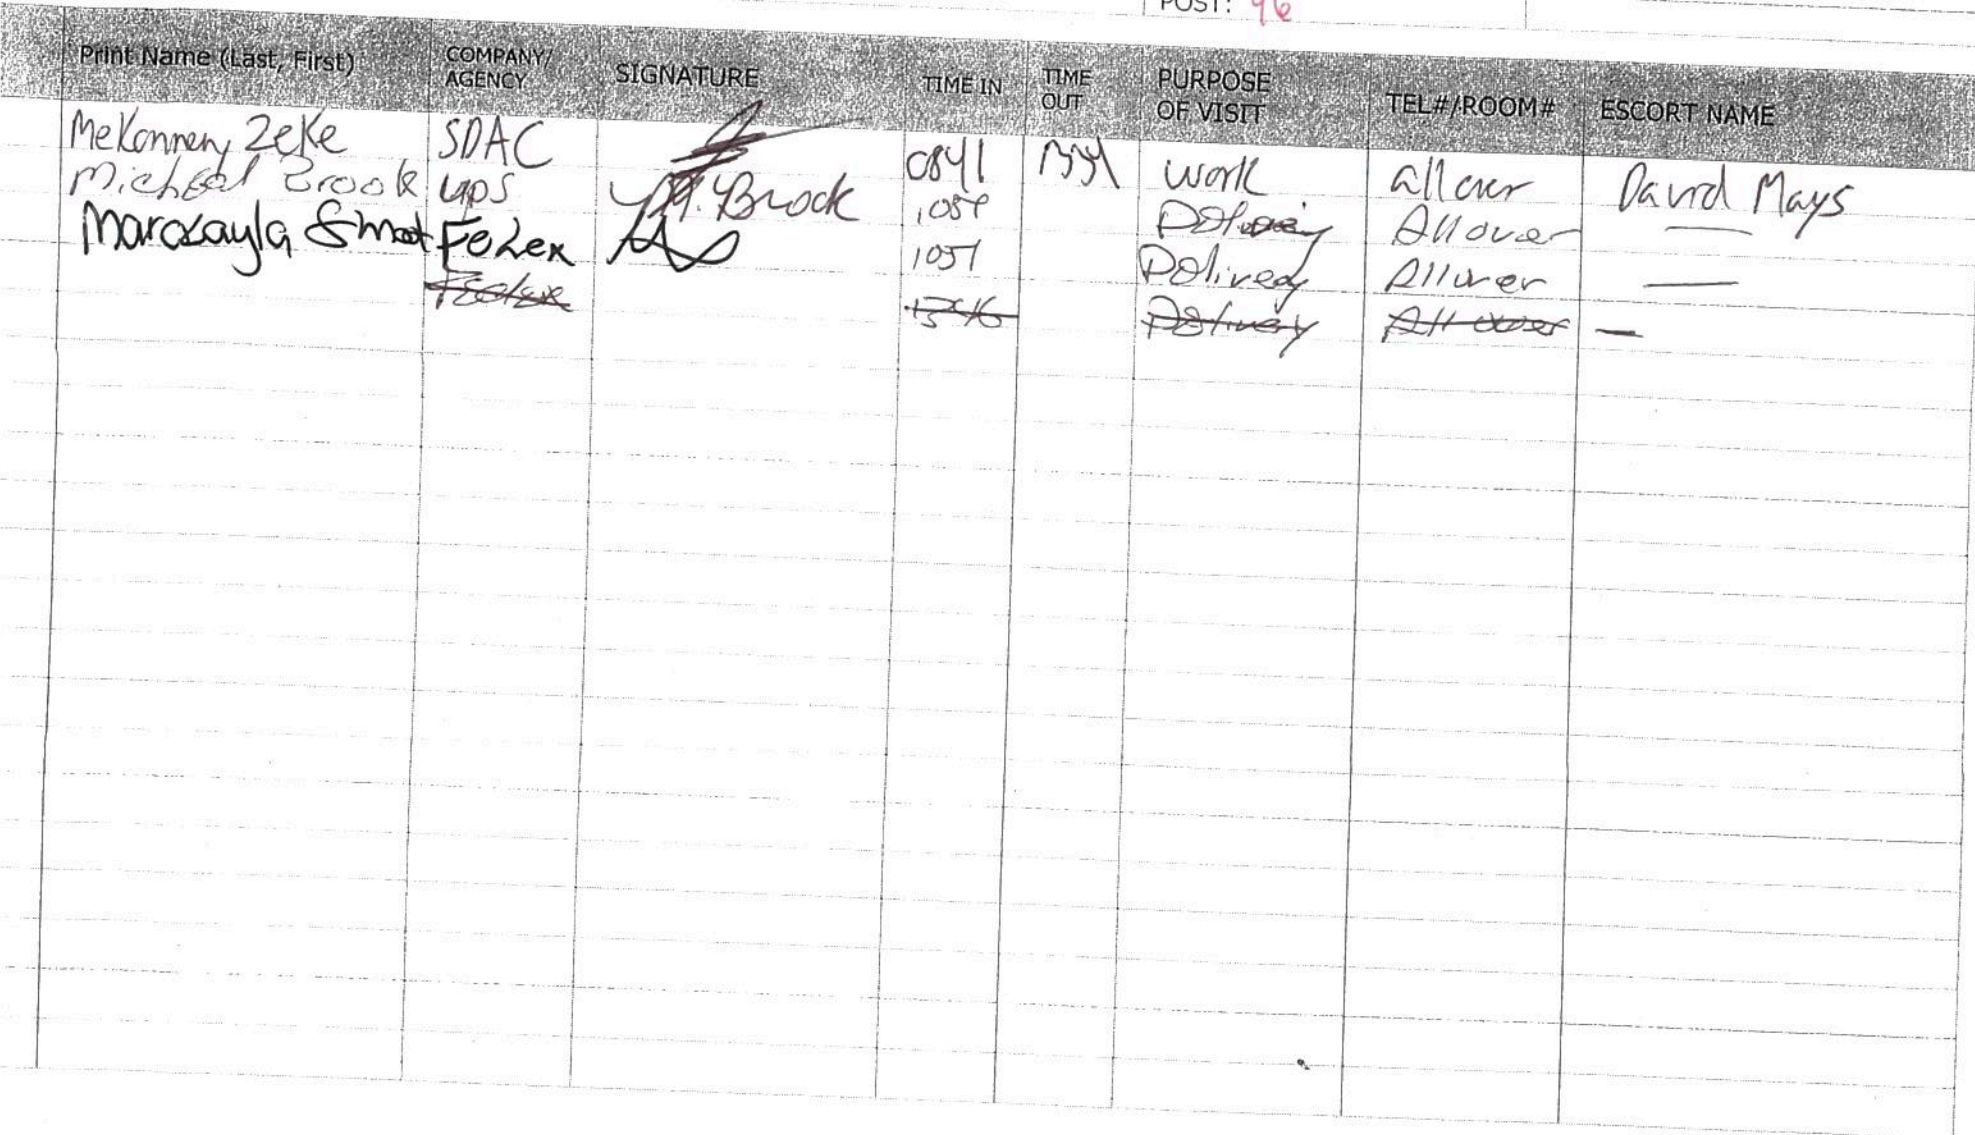 POST: 96
Print Name (Last, First) COMPANY/ AGENCY SIGNATURE TIME IN TIME OUT PURPOSE OF VISIT TEL#/ROOM# ESCORT NAME
Mekonnen, Zeke SDAC 0841 work all over David Mays
Michael Brook ups M. Brock All over —
FeDex 1057 Delivery All over —
FedEx Delivery All over —